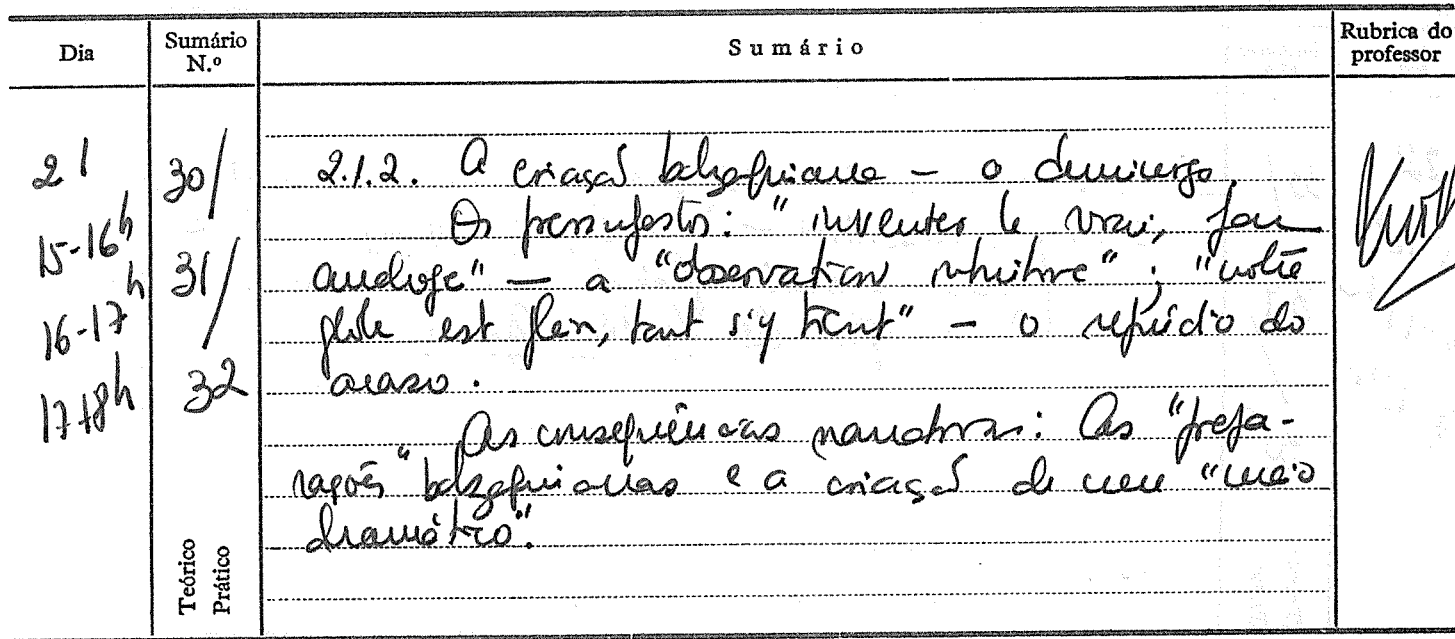 Dia
Sumário N.º
Sumário
Rubrica do professor
21
15-16h
16-17h
17-18h
30/
31/
32
Teórico
Prático
2.1.2. A criação balzaquiana - o demiurgo.
Os pressupostos: "inventer le vrai, par
analogie" - a "observation intuitive"; "notre
globe est plein, tout s'y tient" - o repúdio do
acaso.
As consequências narrativas: As "prepa-
rações" balzaquianas e a criação de um "meio
dramático".